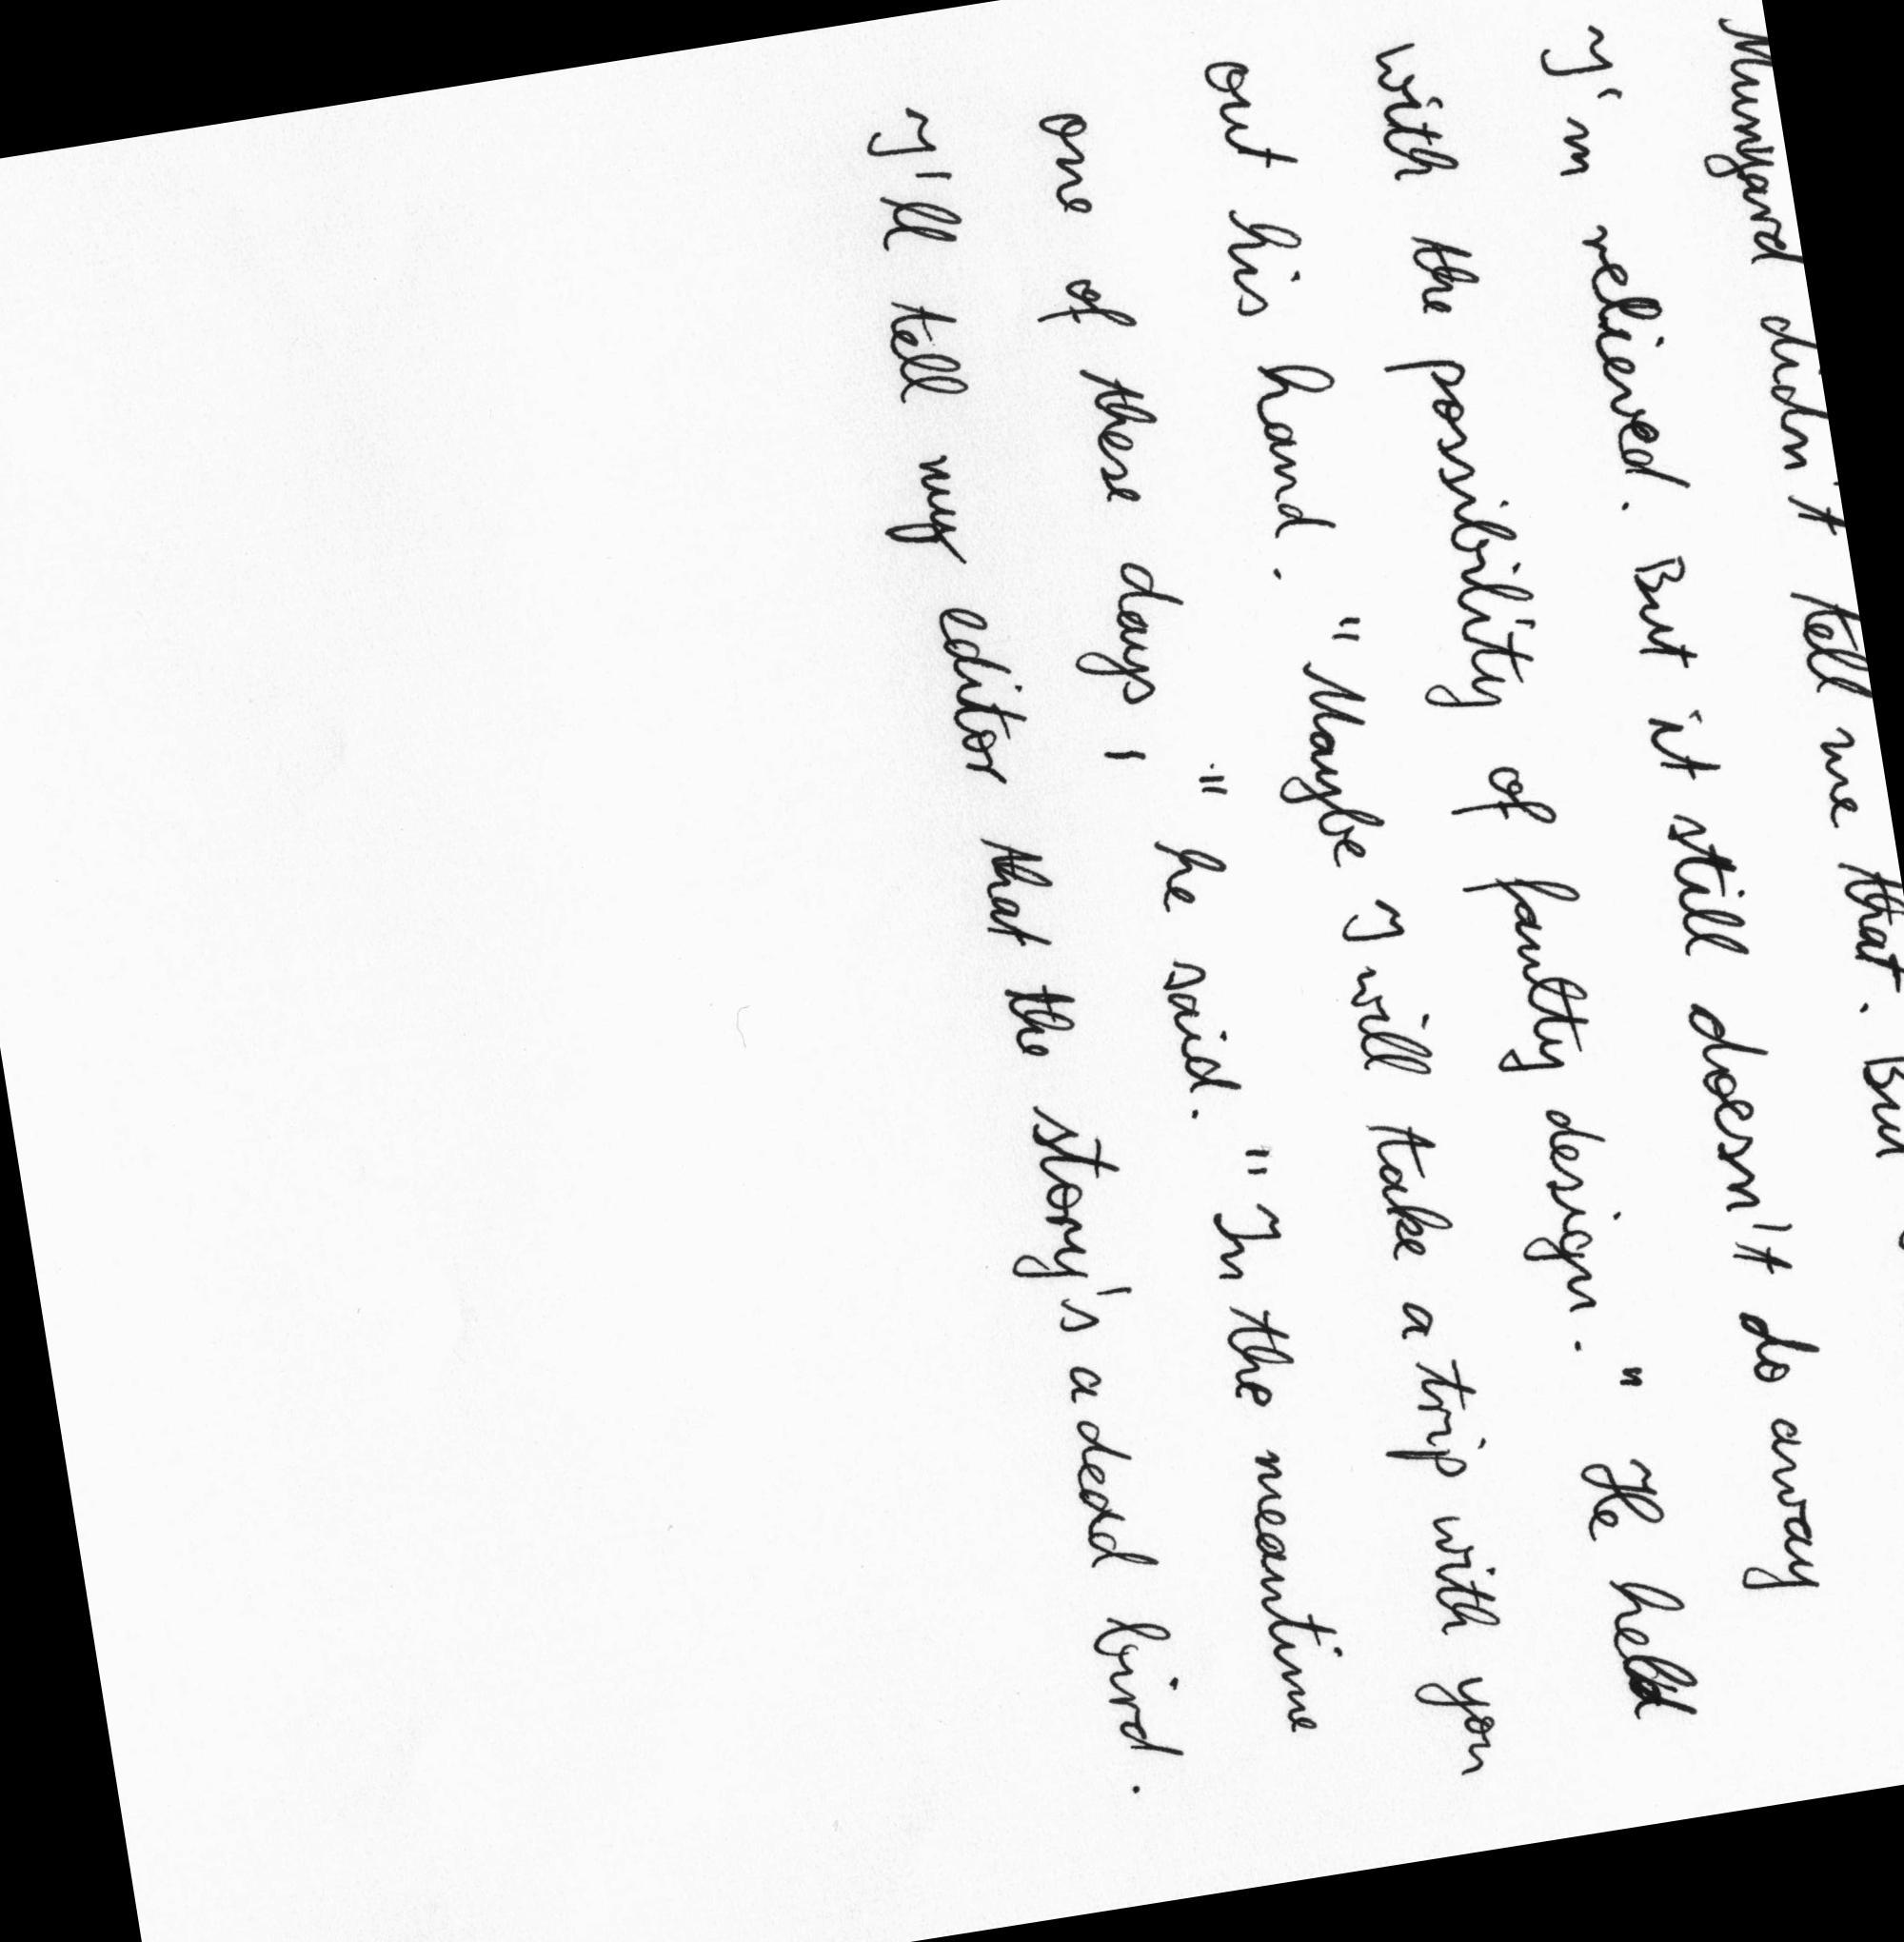 Munyard didn't tell me that. But
I'm relieved. But it still doesn't do away
with the possibility of faulty design." He held
out his hand. "Maybe I will take a trip with you
one of these days," he said. "In the meantime
I'll tell my editor that the story's a dead bird.